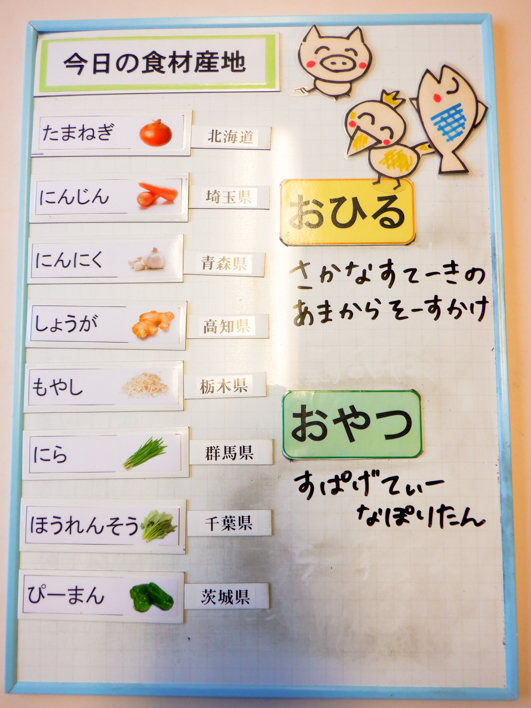 今日の食材産地
たまねぎ 北海道
にんじん 埼玉県
にんにく 青森県
しょうが 高知県
もやし 栃木県
にら 群馬県
ほうれんそう 千葉県
ぴーまん 茨城県
おひる
さかなすてーきの
あまからそーすかけ
おやつ
すぱげてぃー
なぽりたん